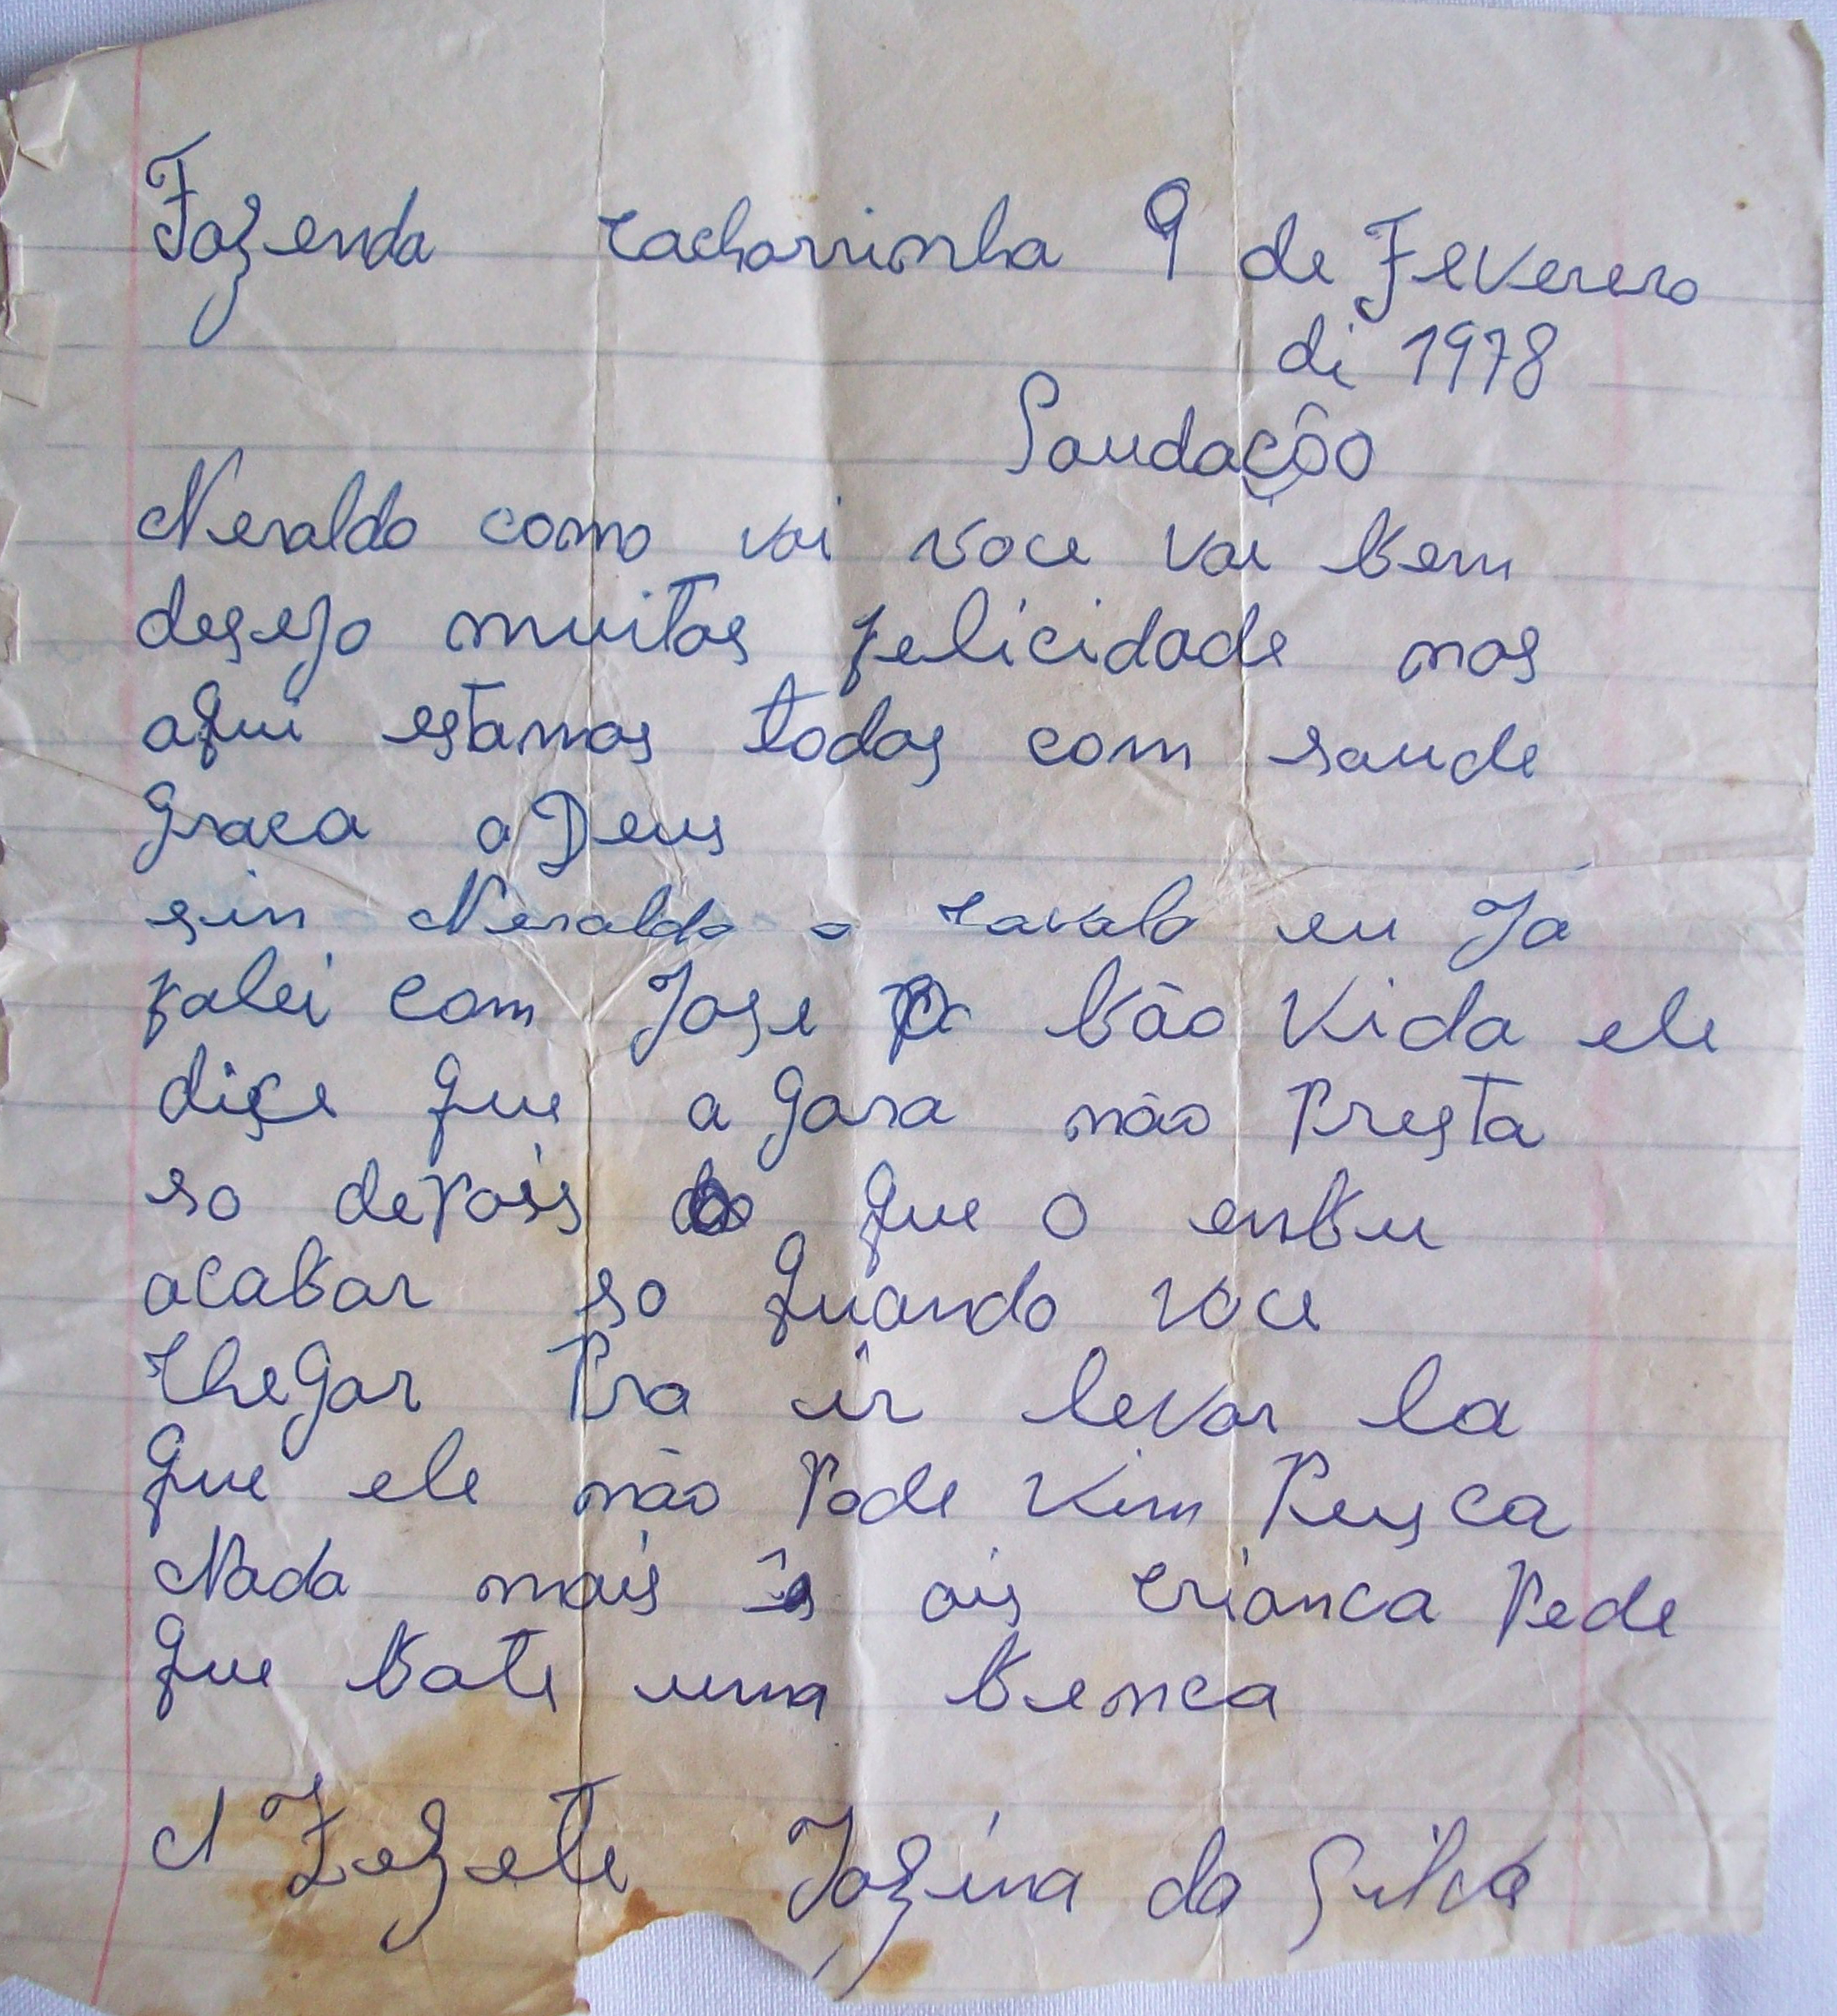 Fazenda cachorrinha 9 de Feverero
di 1978
Saudação
Neraldo como vai voce vai bem
desejo muitas felicidade nos
aqui estamos todos com saude
Graca a Deus
sin Neraldo o cavalo eu Já
falei com Jose Bão Vida ele
diçe que a gara não Presta
so depois que o enbu
acabar so quando voce
cheGar Pra ir levar la
que ele não Pode vim Pusca
Nada mais ais crianca Pede
que bate uma benca
N Zezete Jozina da Silva